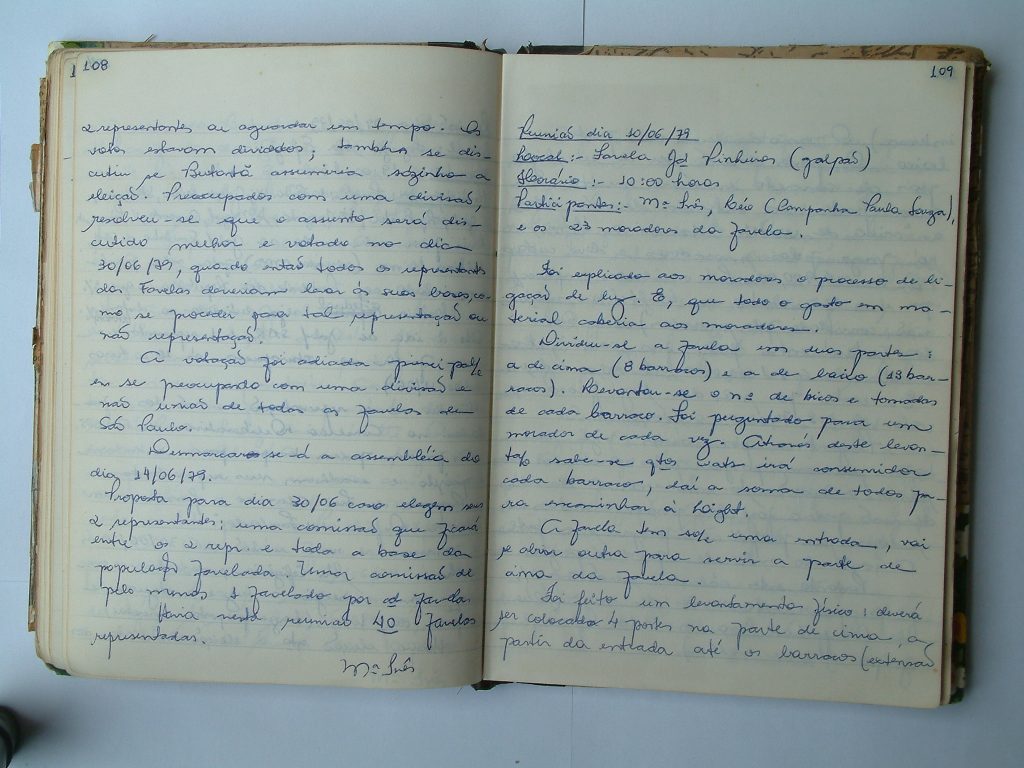 108
2 representantes ou aguardar um tempo. Os
votos estavam divididos; também se dis-
cutiu se Butantã assumiria sózinho a
eleição. Preocupados com uma divisão,
resolveu-se que o assunto será dis-
cutido melhor e votado no dia
30/06/79, quando então todos os representantes
das Favelas deveriam levar às suas bases, co-
mo se proceder para tal representação ou
não representação.
A votação foi adiada principal/e
em se preocupando com uma divisão e
não união de todas as favelas de
São Paulo.
Desmarcou-se a assembléia do
dia 14/06/79.
Proposta para dia 30/06 caso elegem seus
2 representantes; uma comissão que ficará
entre os 2 repr. e toda a base da
população favelada. Uma comissão de
pelo menos 1 favelado por cd favela
Havia nesta reunião 40 favelas
representadas.
Mª Inês
109
Reunião dia 10/06/79
Local:- Favela Jd Pinheiros (galpão)
Horário:- 10:00 horas
Participantes:- Mª Inês, (Campanha Paula Souza),
e os 23 moradores da favela.
Foi explicado aos moradores o processo de li-
gação de luz. E, que todo o gasto em ma-
terial caberia aos moradores.
Dividiu-se a favela em duas partes:
a de cima (8 barracos) e a de baixo (13 bar-
racos). Levantou-se o nº de bicos e tomadas
de cada barraco. Foi perguntado para um
morador de cada vez. Através deste levan-
tº sabe-se qtos wats irá consumidor
cada barraco, daí a soma de todos pa-
ra encaminhar à Light.
A favela tem só uma entrada, vai
se abrir outra para servir a parte de
cima da favela.
Foi feito um levantamento físico: deverá
ser colocado 4 postes na parte de cima, a
partir da entrada até os barracos (extensão